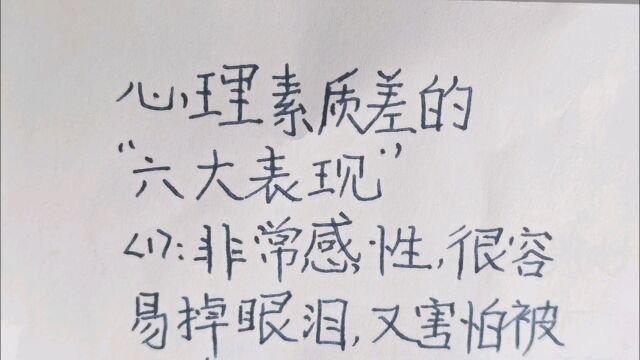 心理素质差的
“六大表现”
<1>:非常感性,很容
易掉眼泪,又害怕被